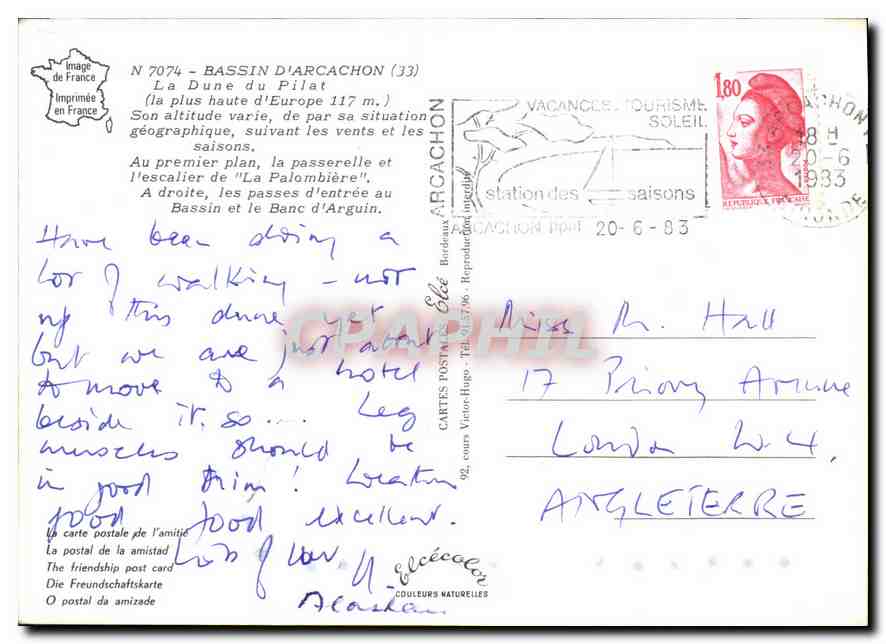 Image
de France
Imprimée
en France
N 7074 - BASSIN D'ARCACHON (33)
La Dune du Pilat
(la plus haute d'Europe 117 m.)
Son altitude varie, de par sa situation
géographique, suivant les vents et les
saisons.
Au premier plan, la passerelle et
l'escalier de "La Palombière".
A droite, les passes d'entrée au
Bassin et le Banc d'Arguin.
Have been doing a
lot of walking - not
up this dune yet
but we are just about
to move to a hotel
beside it. so.... Leg
muscles should be
in good trim! Location
good food excellent.
Lots of love,
La carte postale de l'amitié
La postal de la amistad
The friendship post card
Die Freundschaftskarte
O postal da amizade
Elcécolor
COULEURS NATURELLES
CARTES POSTALES Elcé Bordeaux
92, cours Victor-Hugo - Tél. 91.57.96 - Reproduction interdite
ARCACHON
VACANCES TOURISME
SOLEIL
station des saisons
ARCACHON ppal 20-6-83
1,80
REPUBLIQUE FRANCAISE
ARCACHON
18 H
20-6
1983
GIRONDE
CPAPHIL
Miss M. Hall
17 Priory Avenue
London W.4.
ANGLETERRE